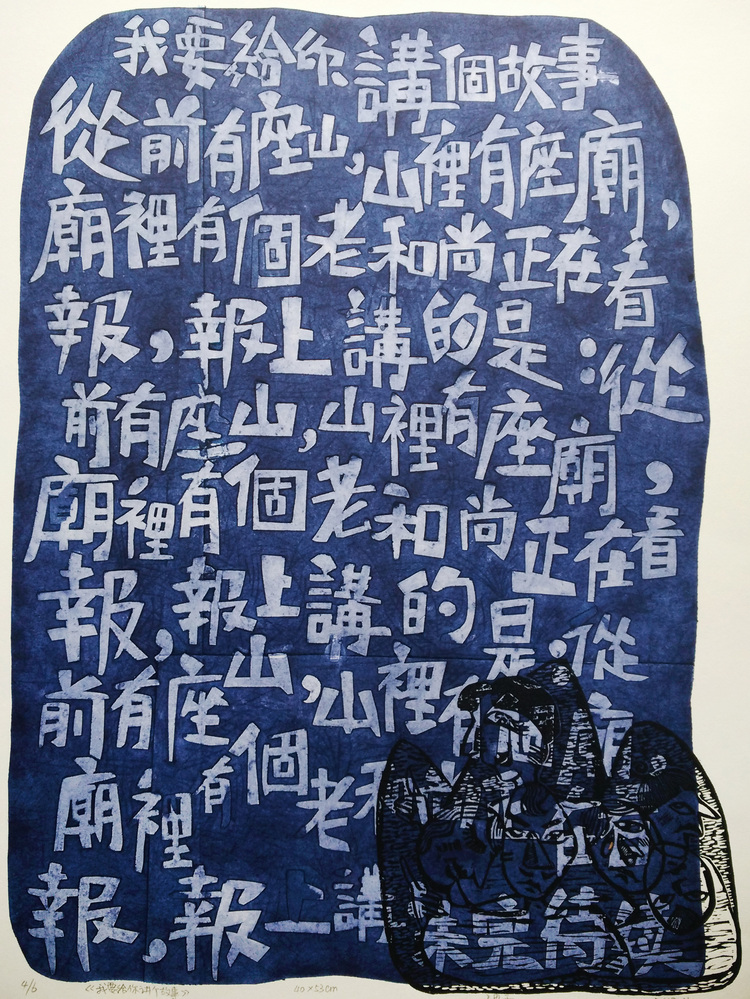 我要给你講個故事
從前有座山，山裡有座廟，
廟裡有個老和尚正在看
報，報上講的是：從
前有座山，山裡有座廟，
廟裡有個老和尚正在看
報，報上講的是：從
前有座山，山裡有 廟
廟裡有個老和
報，報上講 未完待續
4/6 《我要给你讲个故事》 110×53cm